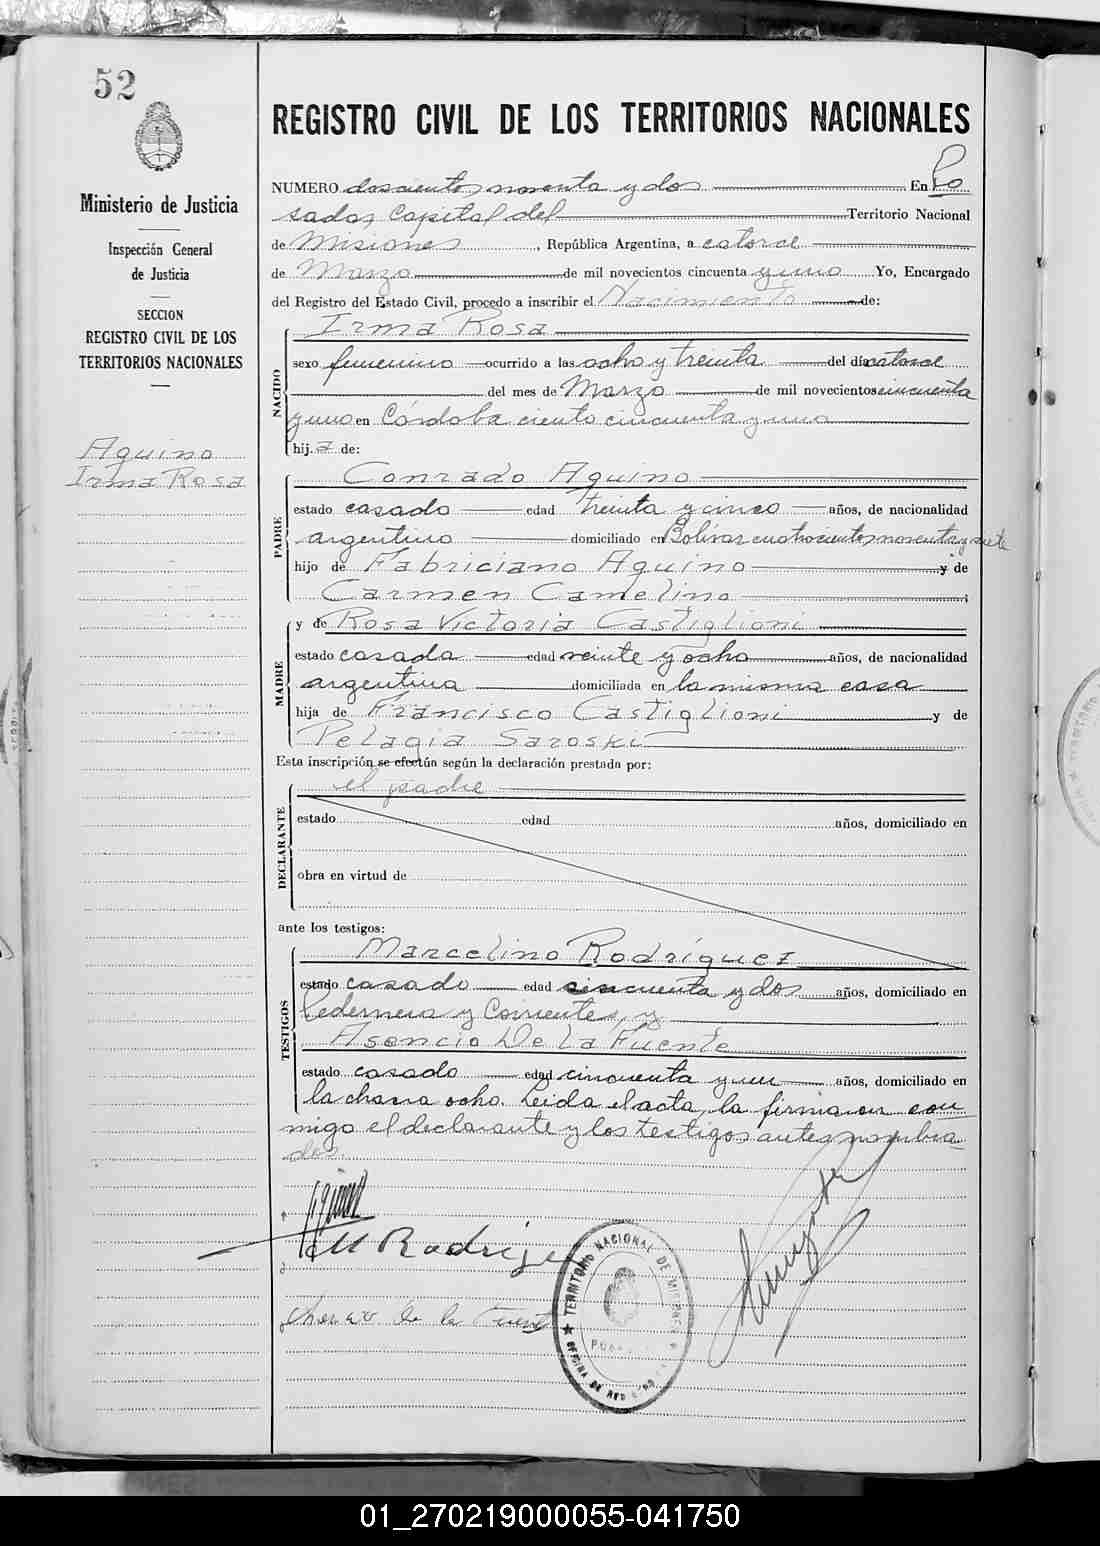 52
Ministerio de Justicia
Inspección General
de Justicia
SECCION
REGISTRO CIVIL DE LOS
TERRITORIOS NACIONALES
Aquino
Irma Rosa
REGISTRO CIVIL DE LOS TERRITORIOS NACIONALES
NUMERO doscientos noventa y dos En Po
sadas, Capital del Territorio Nacional
de Misiones, República Argentina, a catorce
de Marzo de mil novecientos cincuenta y uno Yo, Encargado
del Registro del Estado Civil, procedo a inscribir el Nacimiento de:
NACIDO
Irma Rosa
sexo femenino ocurrido a las ocho y treinta del día catorce
del mes de Marzo de mil novecientos cincuenta
y uno en Córdoba ciento cincuenta y uno
hija de:
PADRE
Conrado Aquino
estado casado edad treinta y cinco años, de nacionalidad
argentino domiciliado en Bolívar cuatrocientos noventa y siete
hijo de Fabriciano Aquino y de
Carmen Camelino;
MADRE
y de Rosa Victoria Castiglioni
estado casada edad veinte y ocho años, de nacionalidad
argentina domiciliada en la misma casa
hija de Francisco Castiglioni y de
Pelagia Saroski
Esta inscripción se efectúa según la declaración prestada por:
DECLARANTE
el padre
estado edad años, domiciliado en
obra en virtud de
ante los testigos:
TESTIGOS
Marcelino Rodríguez
estado casado edad cincuenta y dos años, domiciliado en
Pedernera y Corrientes, y
Asencio De La Fuente
estado casado edad cincuenta y un años, domiciliado en
la chacra ocho. Leida el acta, la firmaron con
migo el declarante y los testigos antes nombra
dos.
M Rodrigue
de la Fuente
TERRITORIO NACIONAL DE MISIONES
OFICINA DE REG
01_270219000055-041750